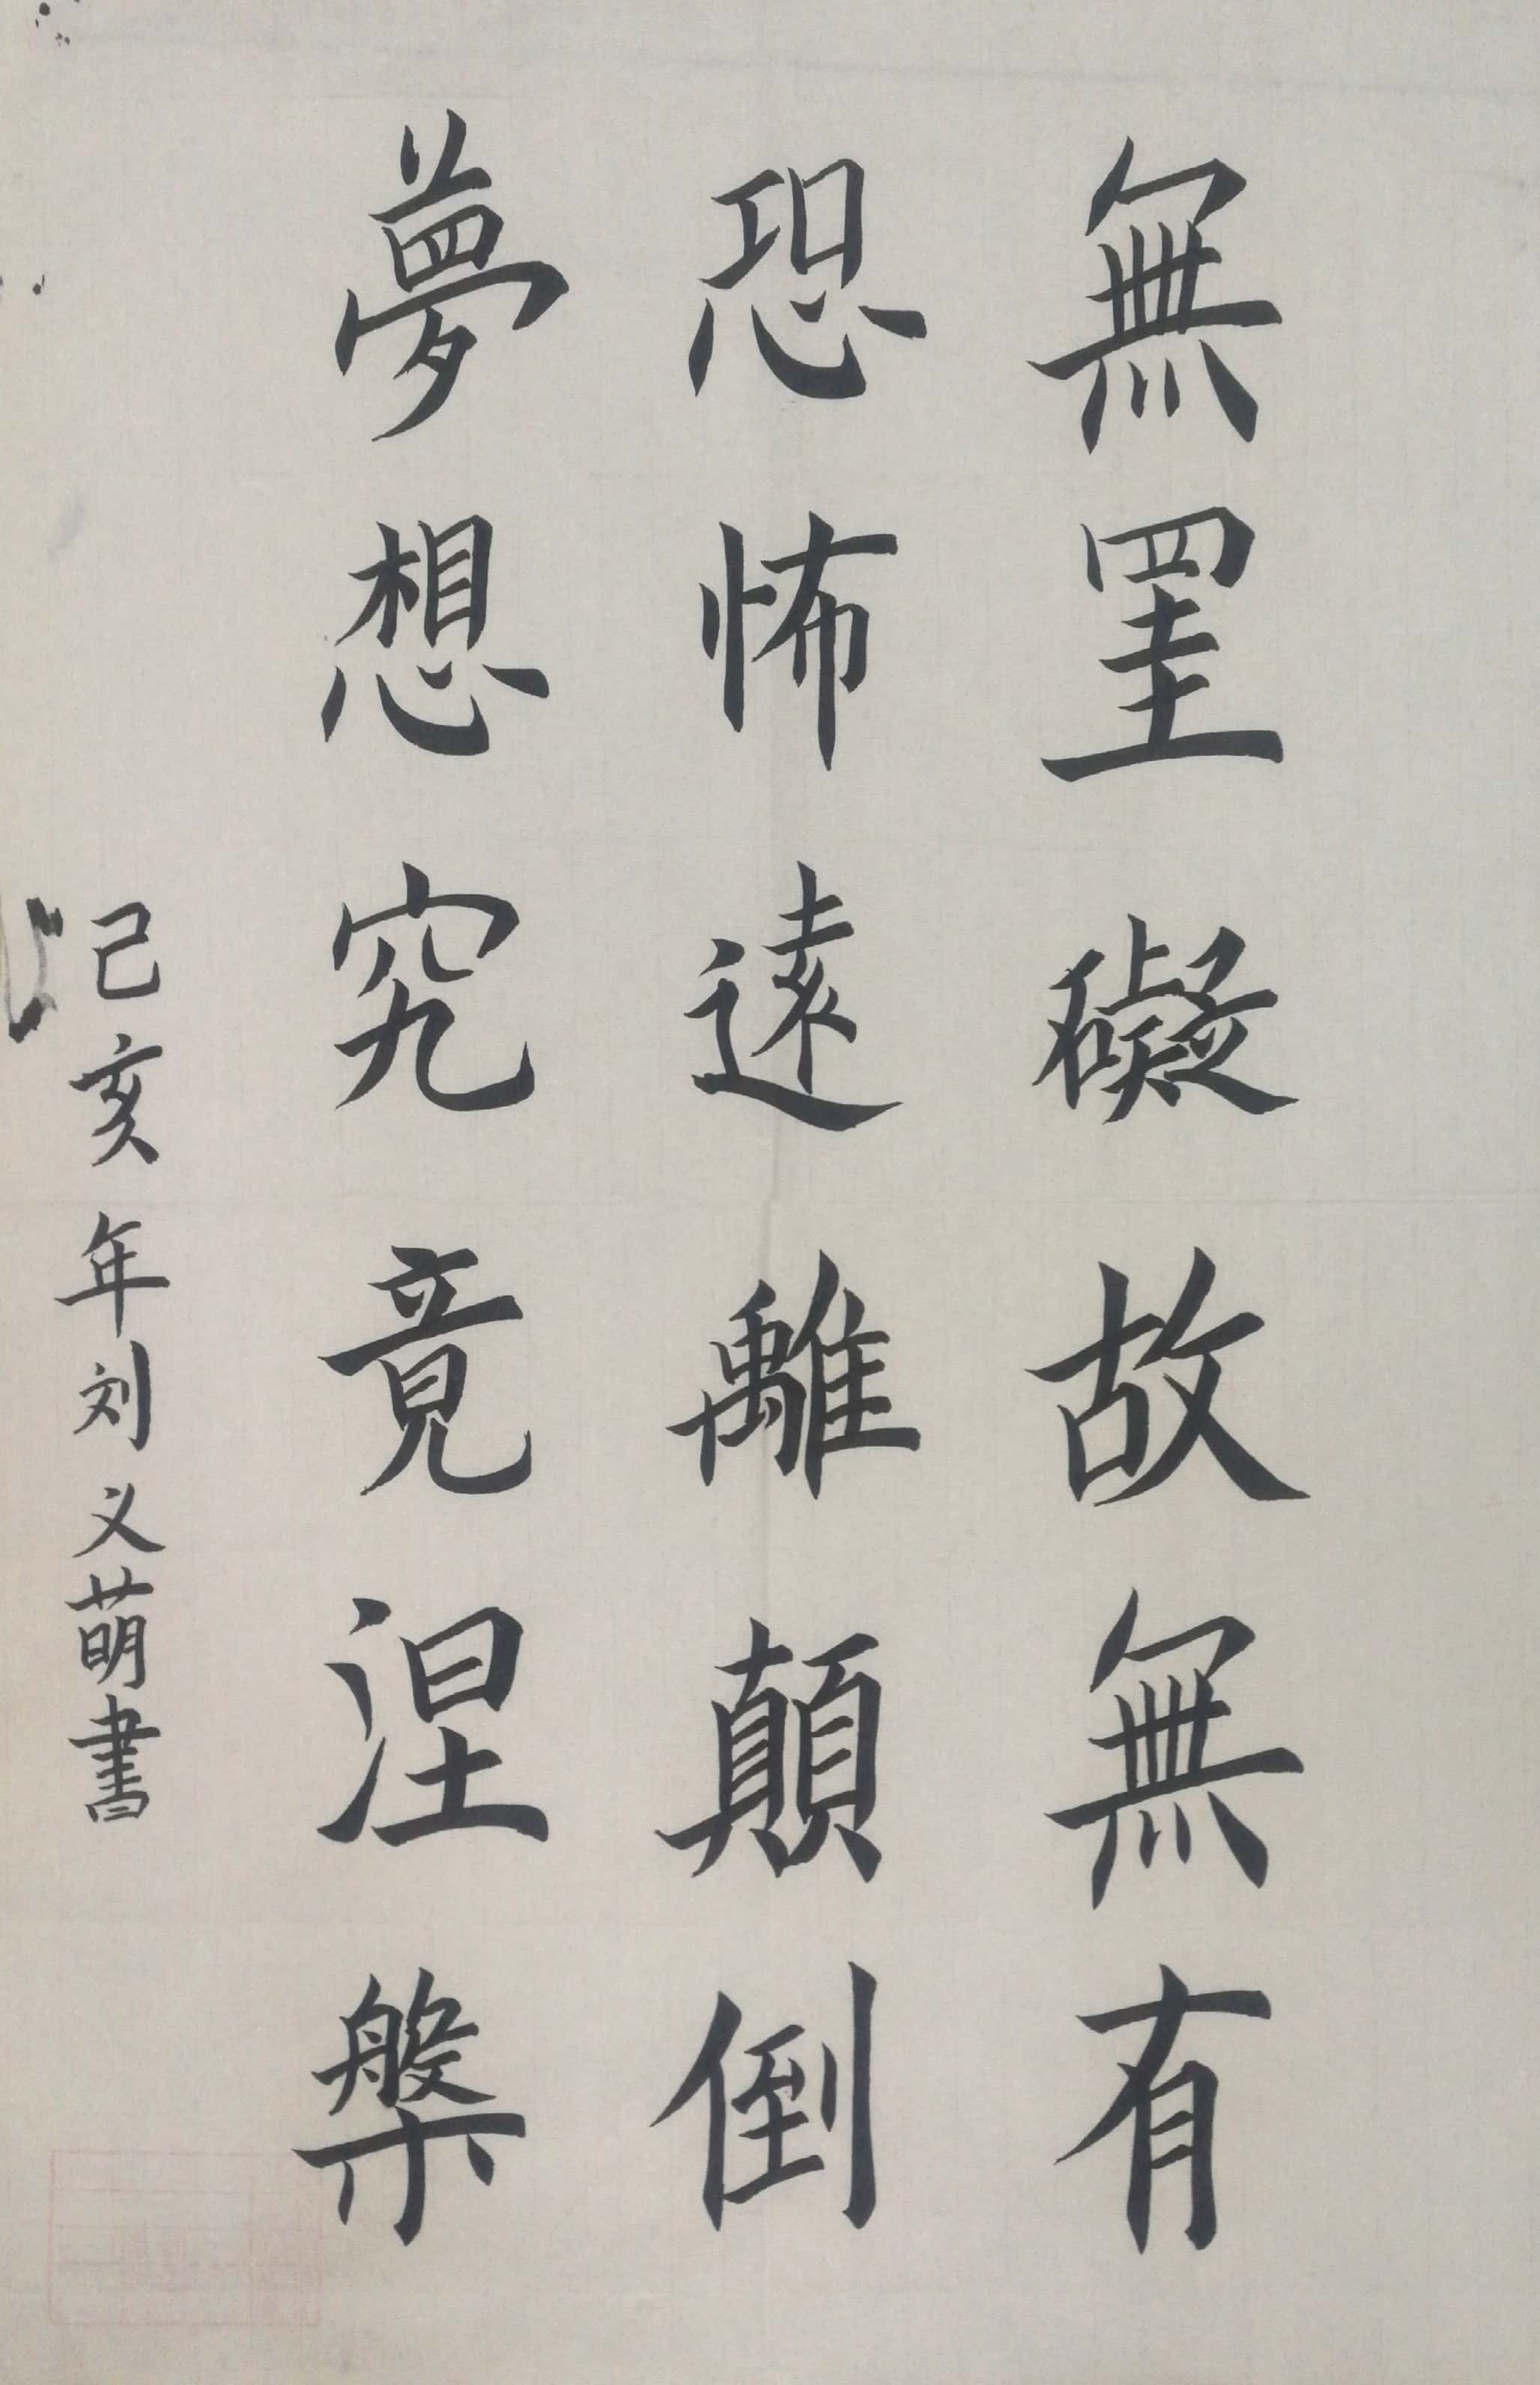 無罣礙故無有
恐怖遠離顛倒
夢想究竟涅槃
己亥年刘义萌書